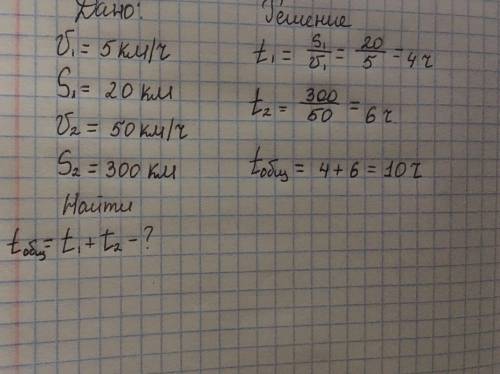 Дано:
υ₁ = 5 км/ч
S₁ = 20 км
υ₂ = 50 км/ч
S₂ = 300 км
Найти
tобщ = t₁ + t₂ - ?
Решение
t₁ = S₁/υ₁ = 20/5 = 4 ч
t₂ = 300/50 = 6 ч.
tобщ = 4 + 6 = 10 ч